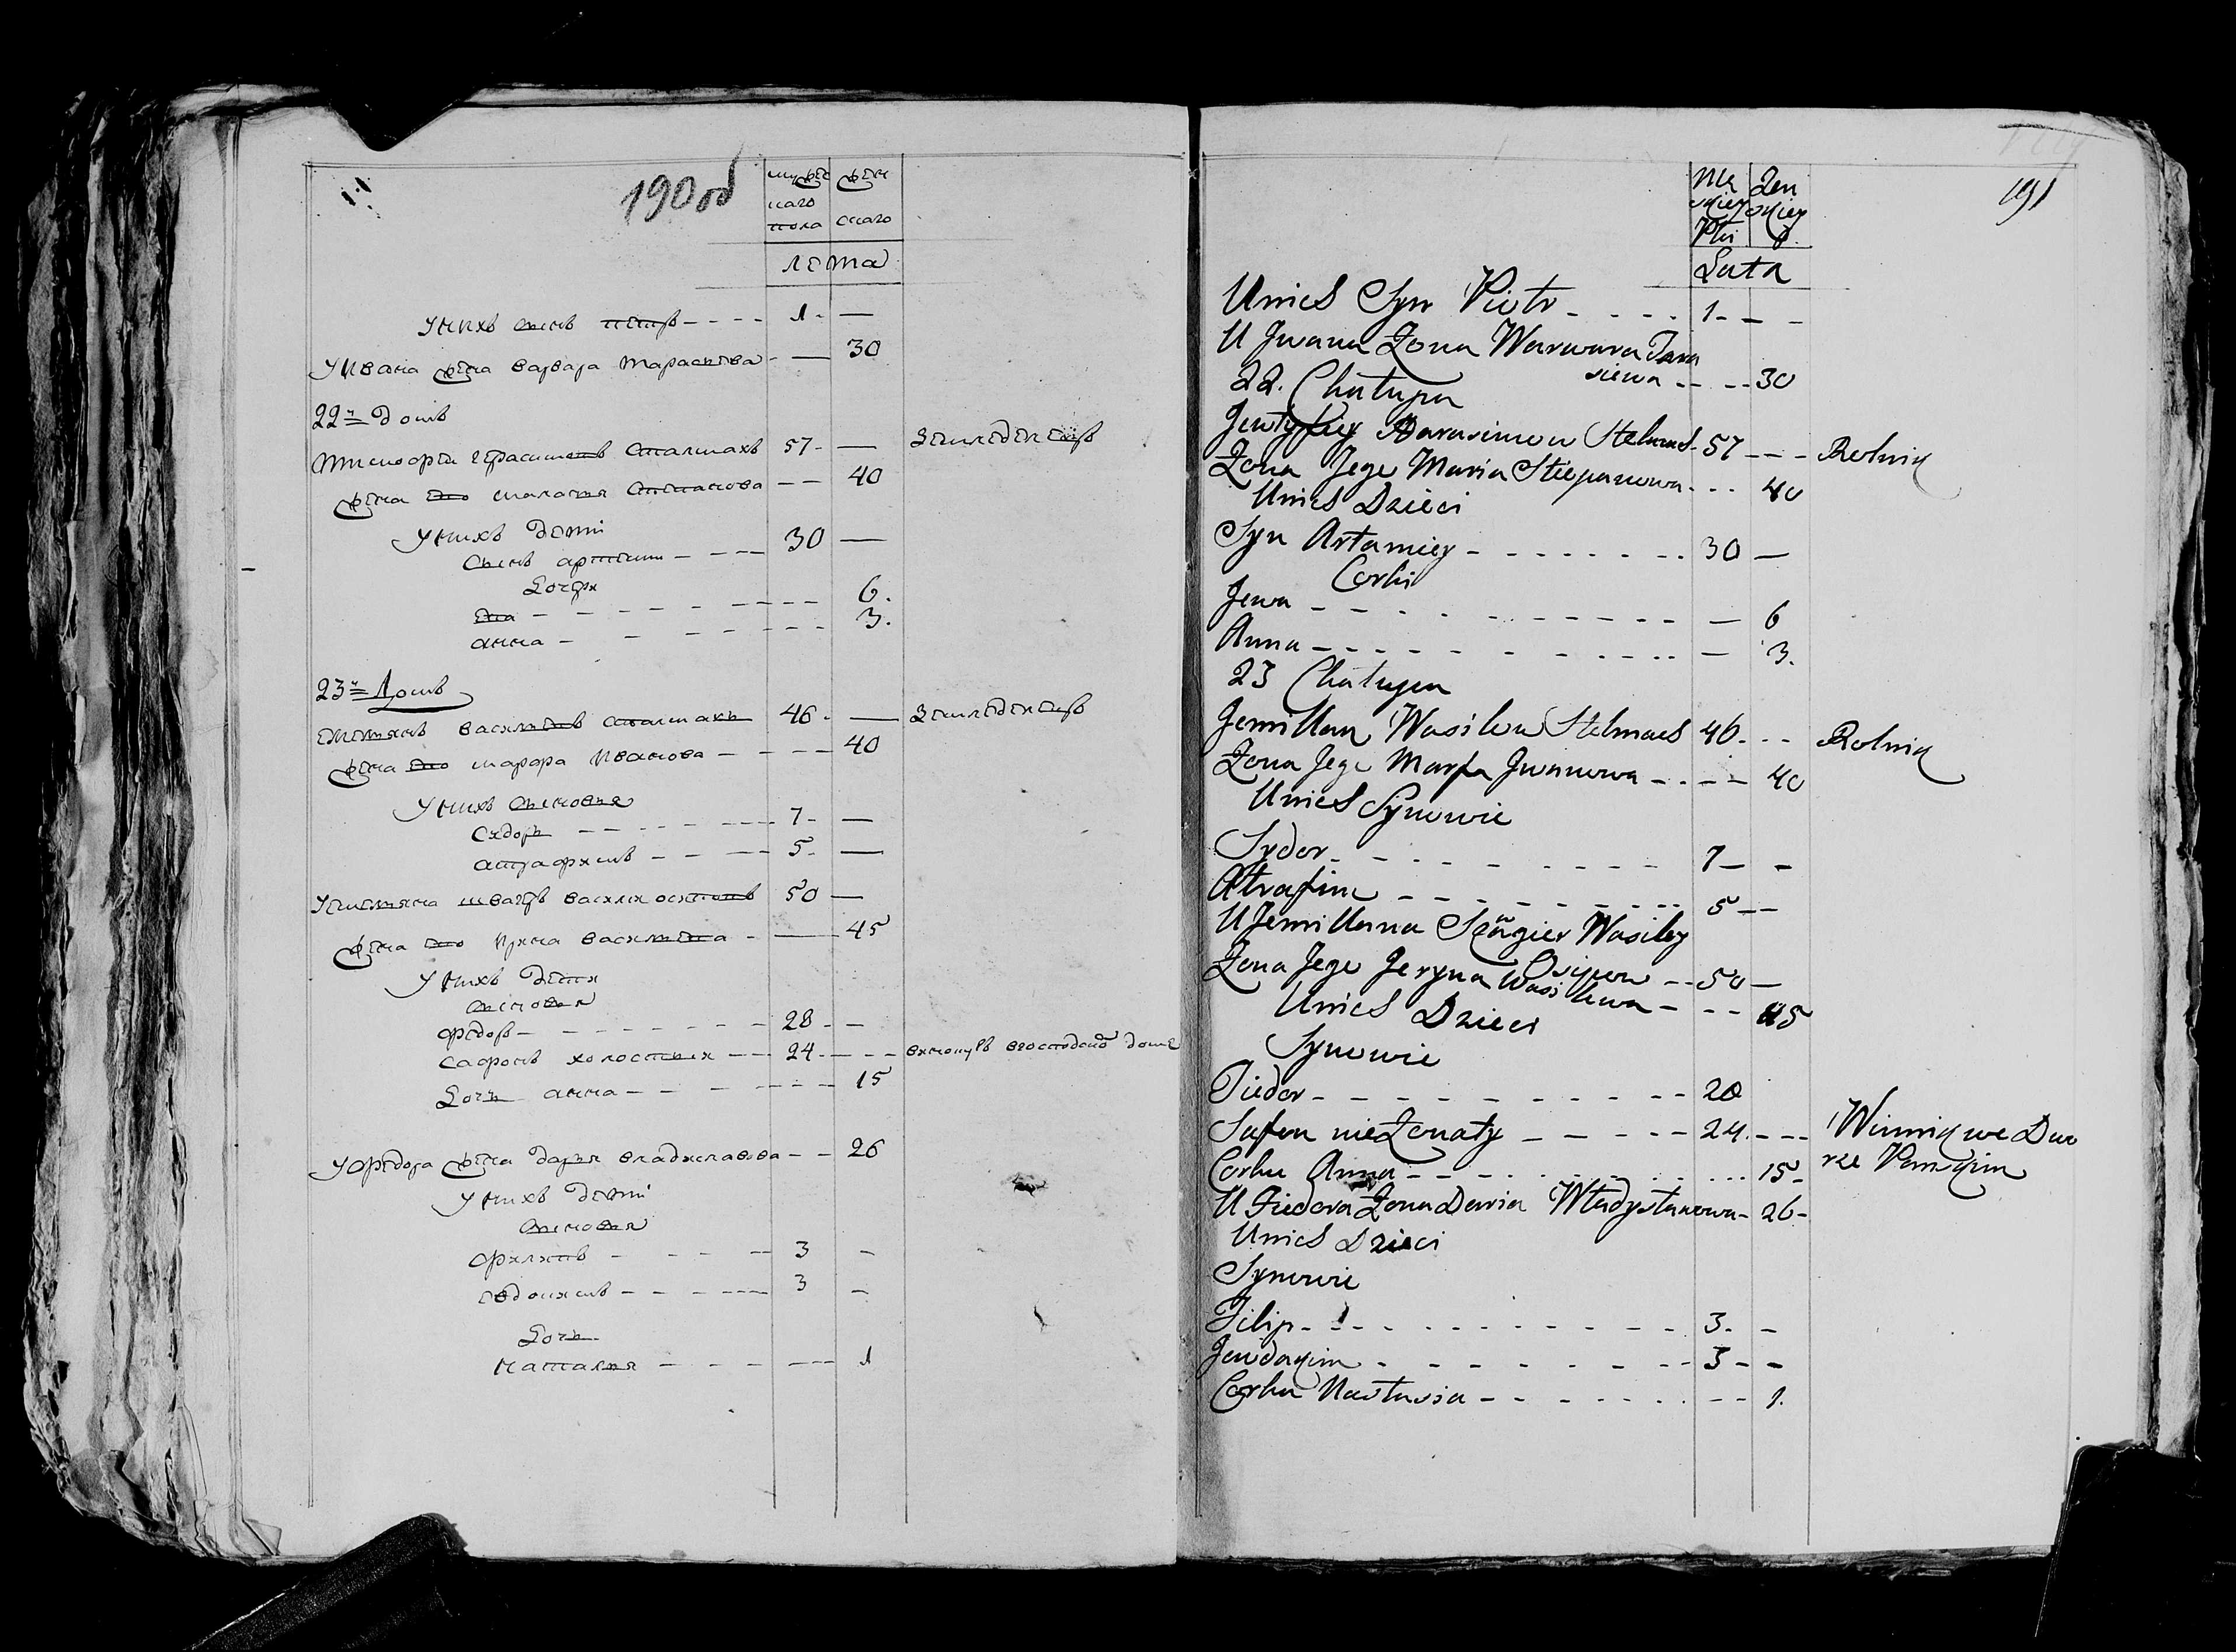 190 об
мужес каго пола
женскаго
лета
Унихъ сынъ петръ - - - - 1 - —
Уивана жена варвара тарасьева - — 30
22й домъ
тимофеи герасимовъ сталмахъ 57 - — Земледелецъ
жена его маланя степанова - - 40
Унихъ дети
сынъ артеми - - - - 30 —
Дочери
Ева - - - - - 6.
анна - - - - - 3.
23й Домъ
емелянъ василевъ сталмахъ 46 - — Земледелецъ
жена его марфа иванова - - - - 40
Унихъ сыновья
Сидоръ - - - - - 7 - —
атрафимъ - - - - 5 - —
Уемеляна швагеръ василии осиповъ 50 —
жена его ирина василева - — 45
Унихъ дети
сыновья
федоръ - - - - - 28 - —
сафронъ холостыи - - - 24 - - - - винокуръ вгосподско домѣ
Дочь анна - - - - - 15
Уфедора жена дарья владиславова - - 26
Унихъ дети
сыновья
филипъ - - - - - 3 -
евдокимъ - - - - - 3 -
Дочь
наталья - - - - - 1
191
Mę skiey Płci
Żen skiey P.
Lata
Unich Syn Piotr - - - - 1 - - -
U Jwana Żona Warwara Tara
siewa - - - - 30
22. Chałupa
Harasimow Stelmach 57 - - - Rolnik
Żona Jego Maria Stiepanowa - - - 40
Unich Dzieci
Syn Artamiey - - - - - 30 —
Corki
Jewa - - - - - — 6
Anna - - - - - — 3.
23 Chałupa
Jemillan Wasilew Stelmach 46 - - - Rolnik
Żona Jego Marfa Jwanowa - - - - 40
Unich Synowie
Sydor - - - - - 7 — -
Atrafim - - - - - 5 - -
U Jemillana Szwagier Wasiley
Osipow - - 50 —
Żona Jego Jeryna Wasilewa - - - 45
Unich Dzieci
Synowie
Fiedor - - - - - 28
Safon nieżonaty - - - - - 24 - - - Winnik we Dwo
rze Panskim
Corka Anna - - - - - 15 -
U Fiedora Żona Daria Władysławowa - 26 -
Unich Dzieci
Synowie
Filip - - - - - 3. -
Jewdokim - - - - - 3 - -
Corka Nastasia - - - - - 1.